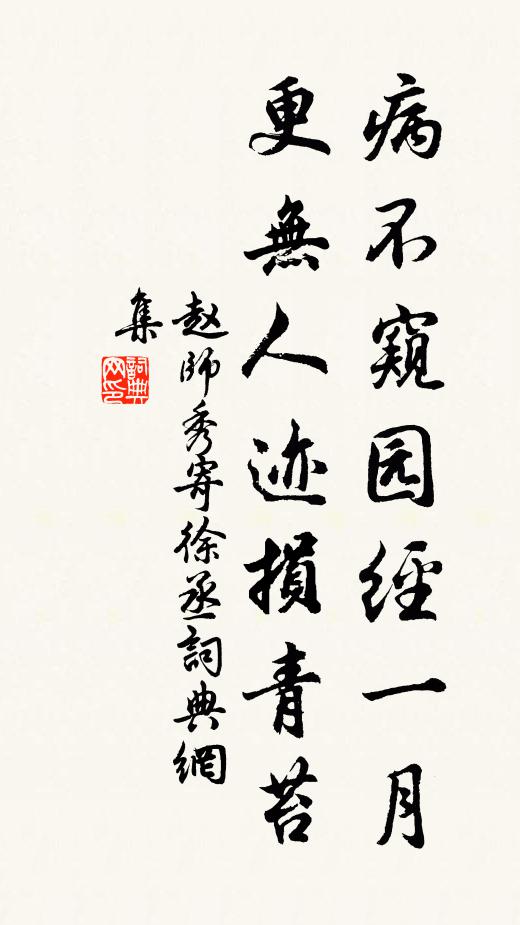 病不窺园經一月
更無人迹損青苔
赵師秀寄徐丞詞典網
集
詞典网印